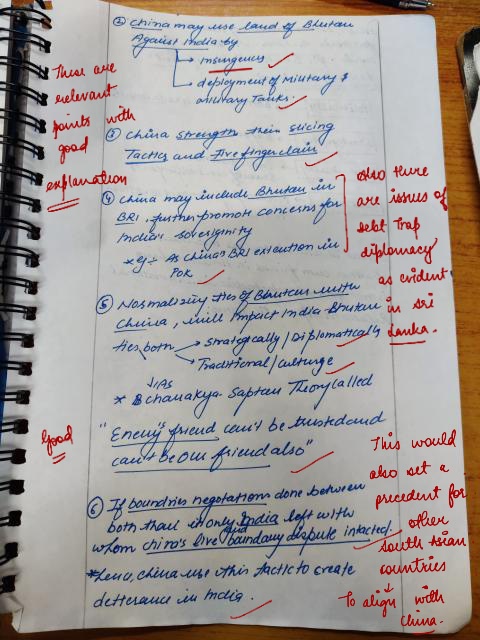 ② China may use land of Bhutan
Against India by
→ insurgency
→ deployment of Military &
military Tanks.
These are
relevant
points with
good
explanation
③ China strength their slicing
Tactics and five finger claim
④ China may include Bhutan in
BRI, further promote concerns for
India's sovereignity
* eg:- As China's BRI execution in
POK
also there
are issues of
debt trap
diplomacy
as evident
in Sri
Lanka.
⑤ Normalising ties of Bhutan with
China, will impact India-Bhutan
ties both → Strategically / Diplomatically
→ Traditional / Culturge
↓ As
* Chanakya Saptan Theory called
"Enemy's friend can't be trusted and
can't be our friend also"
Good
⑥ If boundries negotation done between
both than in only India left with
whom China's live and boundary dispute intacted.
* Hence, China use this tactic to create
detterance in India.
This would
also set a
precedent for
other
South Asian
countries
↓
To align with
China.